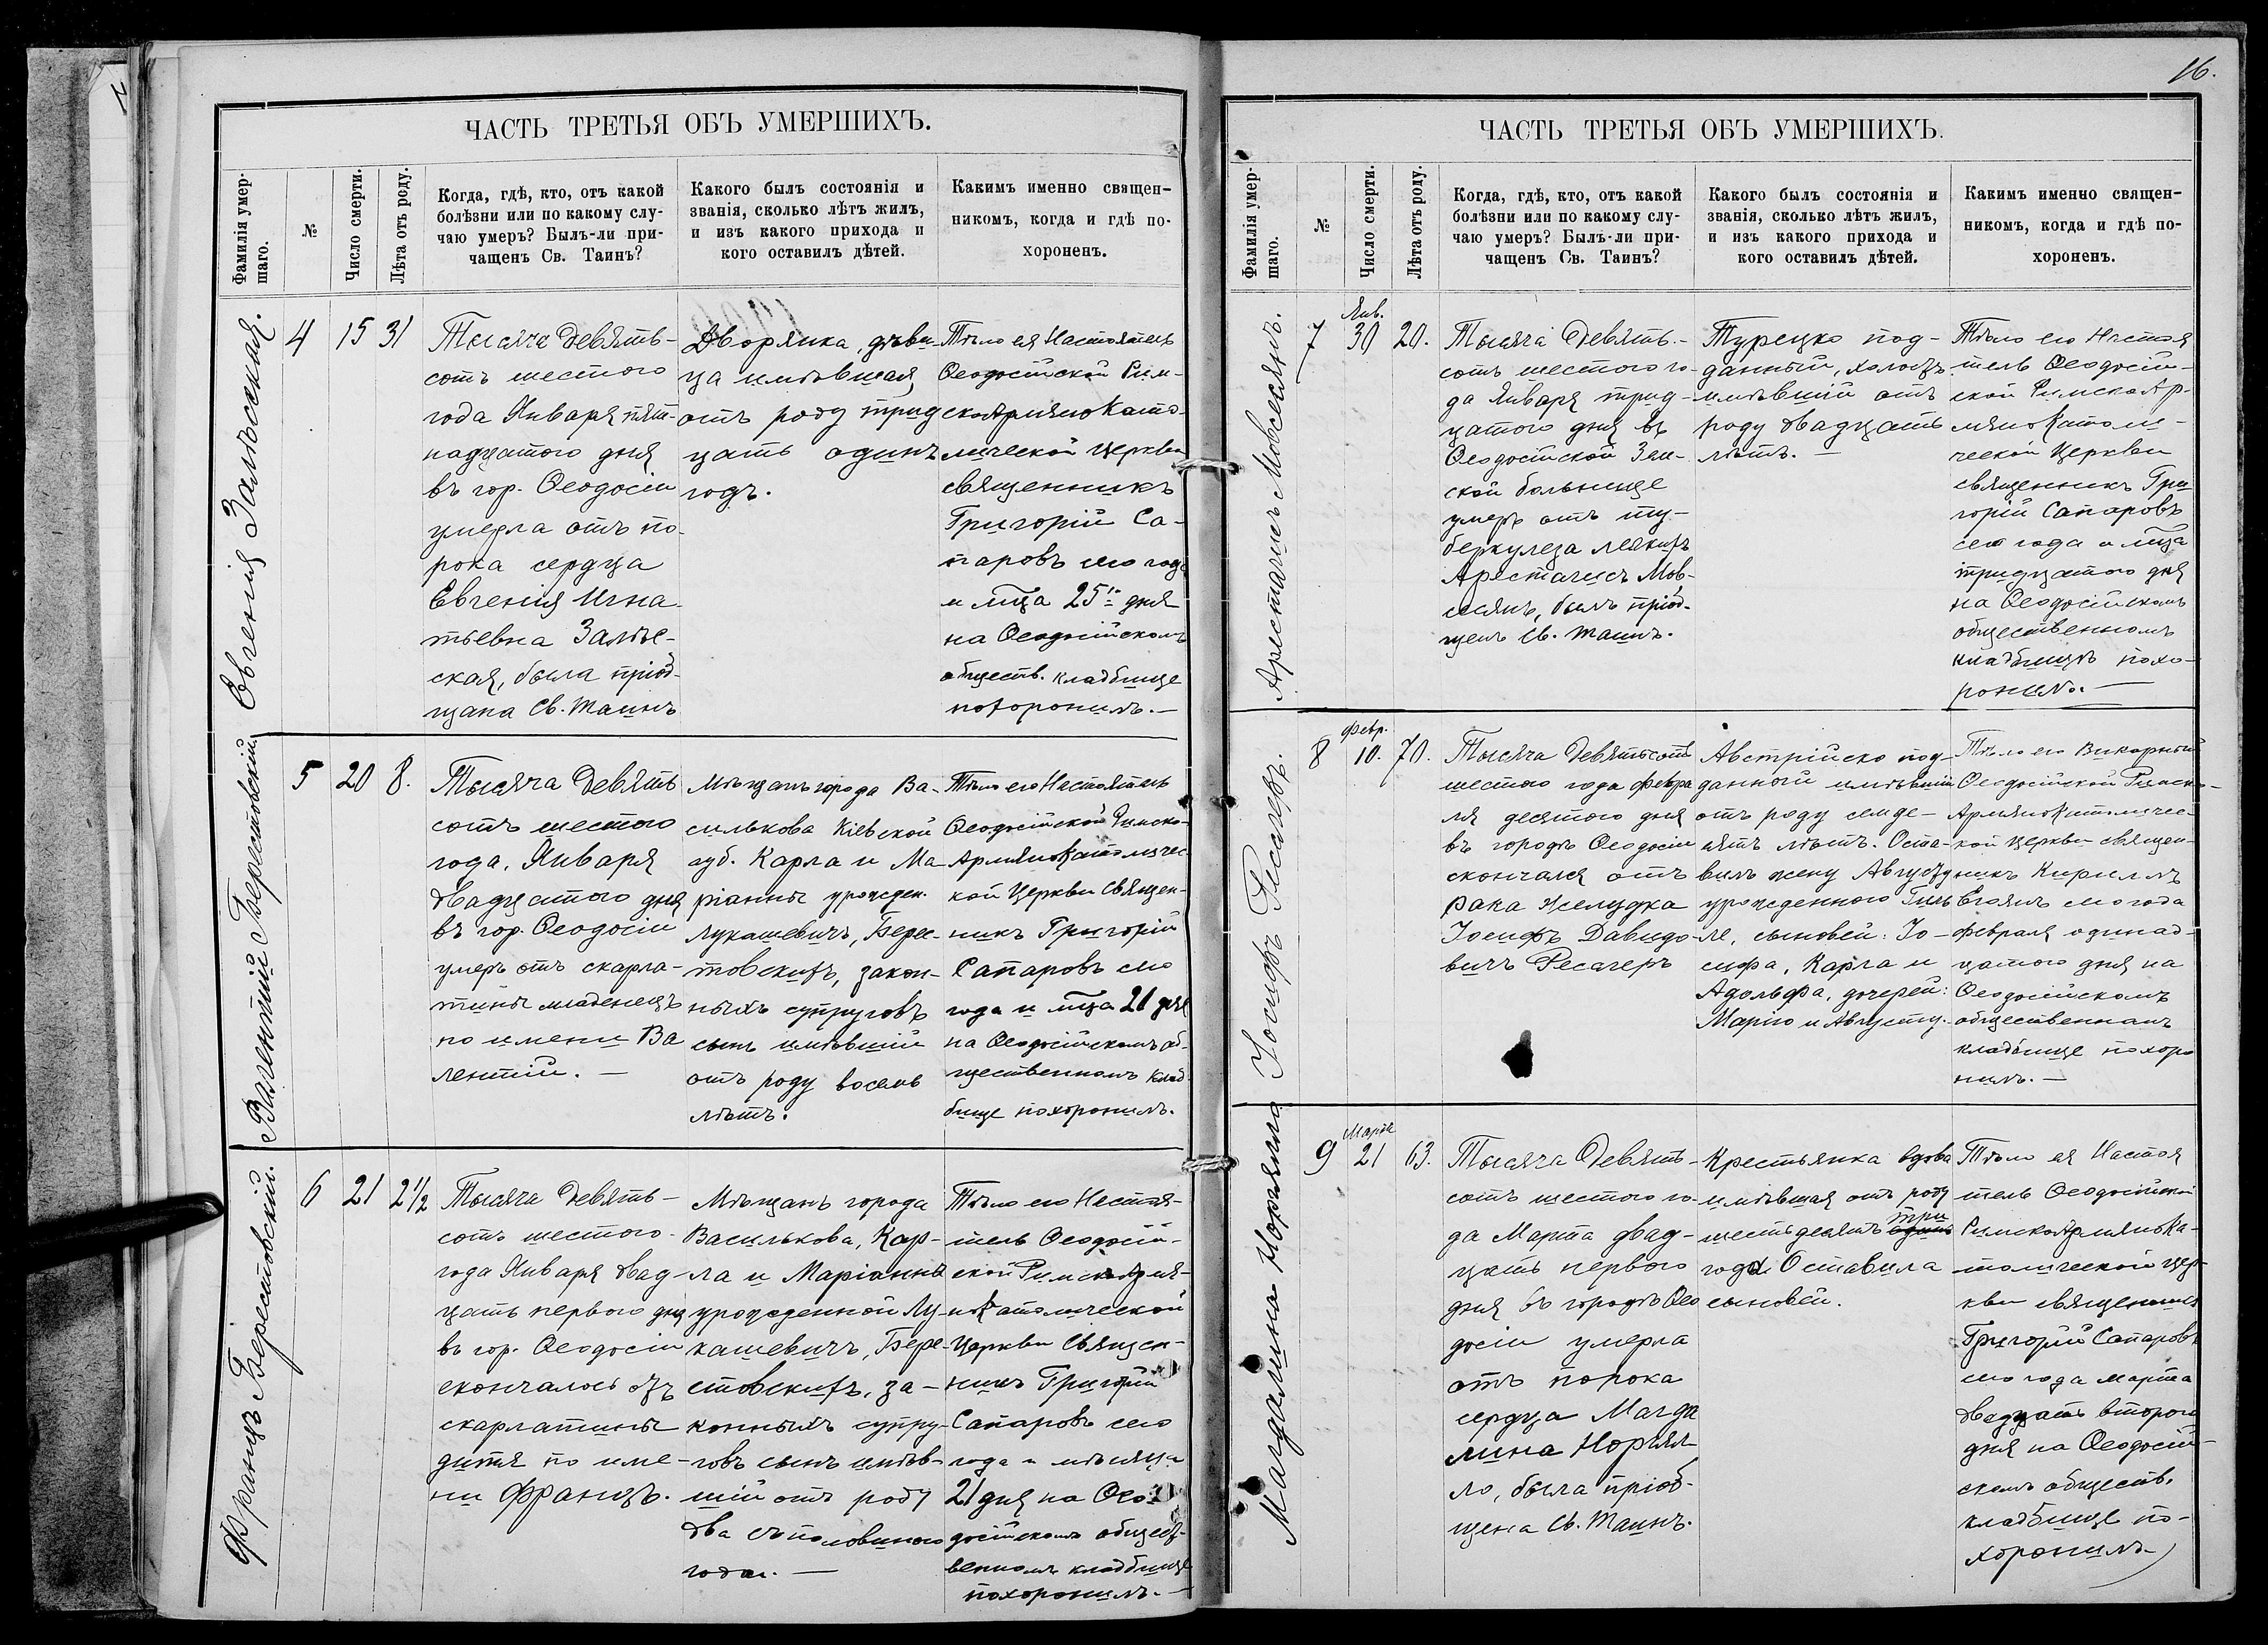 16.
ЧАСТЬ ТРЕТЬЯ ОБЪ УМЕРШИХЪ.
Фамилія умер-
шаго.
№
Число смерти.
Лѣта отъ роду.
Когда, гдѣ, кто, отъ какой
болѣзни или по какому слу-
чаю умеръ? Былъ-ли при-
чащенъ Св. Таинъ?
Какого былъ состоянія и
званія, сколько лѣтъ жилъ,
и изъ какого прихода и
кого оставилъ дѣтей.
Какимъ именно священ-
никомъ, когда и гдѣ по-
хороненъ.
Евгенія Залѣсская.
4
15
31
Тысяча девять-
сотъ шестого
года Января пят-
надцатого дня
въ гор. Ѳеодосіи
умерла отъ по-
рока сердца
Евгенія Игна-
тьевна Залѣс-
ская, была пріоб-
щана Св. Таинъ
Дворянка, дѣви-
ца имѣвшая
отъ роду трид
цать одинъ
годъ.
Тѣло ея Настоятель
Ѳеодосійской Рим-
скоАрмяноКато-
лической Церкви
священникъ
Григорій Са-
паровъ сего года
и мѣца 25го дня
на Ѳеодосійскомъ
обществ. кладбище
похоронилъ.—
Валентій Берестовскій.
5
20
8.
Тысяча девять
сотъ шестого
года, Января
двадцатого дня
въ гор. Ѳеодосіи
умеръ отъ скарла-
тины младенецъ
по имени Ва
лентій.—
Мѣщанъ города Ва-
силькова Кіевской
губ. Карла и Ма-
ріанны урожден.
Лукашевичъ, Берес-
товскихъ, закон-
ныхъ супруговъ
сынъ имѣвшій
отъ роду восемь
лѣтъ.
Тѣло его Настоятель
Ѳеодосійской Римско-
АрмяноКатоличес-
кой Церкви Священ-
никъ Григорій
Сапаровъ сего
года и мѣца 21 дня
на Ѳеодосійскомъ об-
щественномъ клад-
бище похоронилъ.
Францъ Берестовскій.
6
21
2 1/2
Тысяча девять-
сотъ шестого
года Января двад-
цать первого дня
въ гор. Ѳеодосіи
скончалось отъ
скарлатины
дитя по име-
ни Францъ.
Мѣщанъ города
Василькова, Кар-
ла и Маріанны
урожденной Лу-
кашевичъ, Бере-
стовскихъ, за-
конныхъ супру-
говъ сынъ имѣв-
шій отъ роду
два съ половиною
года.—
Тѣло его Настоя-
тель Ѳеодосій-
ской РимскоАрмя-
ноКатолической
Церкви Священ-
никъ Григорій
Сапаровъ сего
года и мѣсяца
21 дня на Ѳео-
досійскомъ общест-
венномъ кладбище
похоронилъ.—
ЧАСТЬ ТРЕТЬЯ ОБЪ УМЕРШИХЪ.
Фамилія умер-
шаго.
№
Число смерти.
Лѣта отъ роду.
Когда, гдѣ, кто, отъ какой
болѣзни или по какому слу-
чаю умеръ? Былъ-ли при-
чащенъ Св. Таинъ?
Какого былъ состоянія и
званія, сколько лѣтъ жилъ,
и изъ какого прихода и
кого оставилъ дѣтей.
Какимъ именно священ-
никомъ, когда и гдѣ по-
хороненъ.
Арестагесъ Мовсесянъ.
7
Янв.
30
20.
Тысяча девять-
сотъ шестого го-
да Января трид-
цатого дня въ
Ѳеодосійской Зем-
ской больнице
умеръ отъ ту-
беркулеза легкихъ
Арестагесъ Мов-
сесянъ, былъ пріоб-
щенъ Св. Таинъ.
Турецко под-
данный, холостъ
имѣвшій отъ
роду двадцать
лѣтъ.—
Тѣло его Настоя
тель Ѳеодосій-
ской РимскоАр-
мяноКатоли-
ческой Церкви
священникъ Гри
горій Сапаровъ
сего года и мѣца
тридцатого дня
на Ѳеодосійскомъ
общественномъ
кладбищѣ похо-
ронилъ.—
Іосифъ Гесагеръ.
8
февр.
10.
70.
Тысяча девятьсотъ
шестого года февра
ля десятого дня
въ городѣ Ѳеодосіи
скончался отъ
рака желудка
Іосифъ Давидо-
вичъ Гесагеръ
Австрійско под-
данный имѣвшій
отъ роду семде-
сятъ лѣтъ. Оста-
вилъ жену Августу
урожденного
сыновей: Іо-
сифа, Карла и
Адольфа, дочерей:
Марію и Августу.
Тѣло его Викарный
Ѳеодосійской Римско-
АрмяноКатоличес-
кой Церкви священ-
никъ Кириллъ
сего года
февраля одинад-
цатого дня на
Ѳеодосійскомъ
общественномъ
кладбище похоро
нилъ.—
Магдалина Норкялло
9
Марта
21
63.
Тысяча Девять-
сотъ шестого го-
да Марта двад-
цать первого
дня въ городѣ Ѳео
досіи умерла
отъ порока
сердца Магда
лина Норкял-
ло, была пріоб-
щена Св. Таинъ.
Крестьянка вдова
имѣвшая отъ роду
шестьдесятъ три
года. Оставила
сыновей.
Тѣло ея Настоя
тель Ѳеодосійской
РимскоАрмяноКа-
толической Цер-
кви священникъ
Григорій Сапаровъ
сего года Марта
двадцать второго
дня на Ѳеодосій-
скомъ обществ.
кладбище по-
хоронилъ